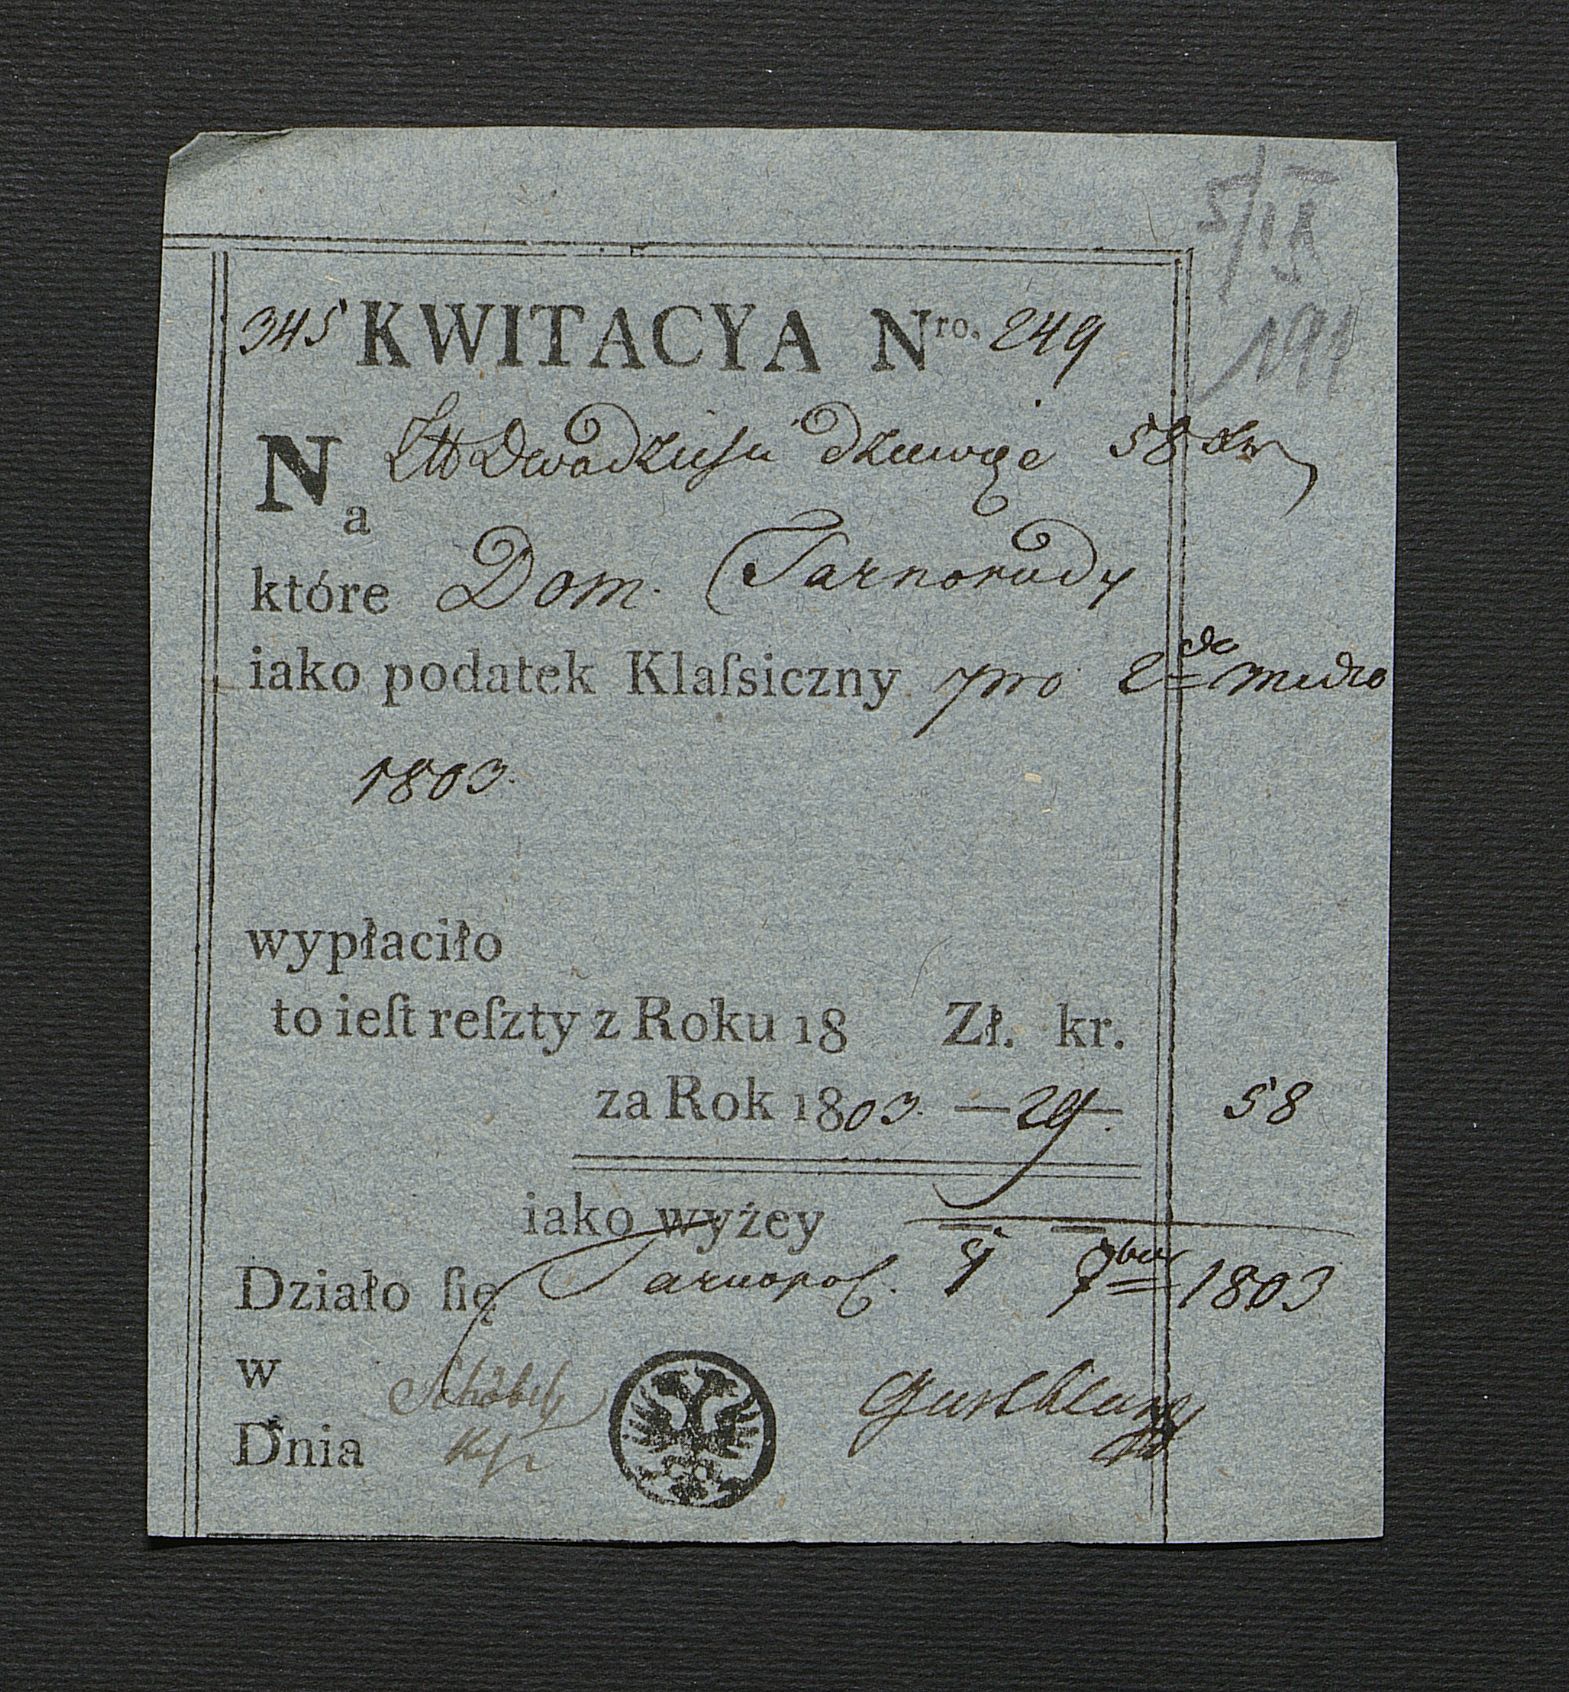 5/IX
191
345 KWITACYA Nro. 249
Na Złł Dwadziescia dziewięć 58 Xr
które Dom. Tarnorudy
iako podatek Klaſsiczny pro 2do medio
1803.
wypłaciło
to ieſt reſzty z Roku 18 Zł. kr.
za Rok 1803. — 29. — 58
iako wyżey
Działo ſię Tarnopol. 7bris 1803
w
Dnia